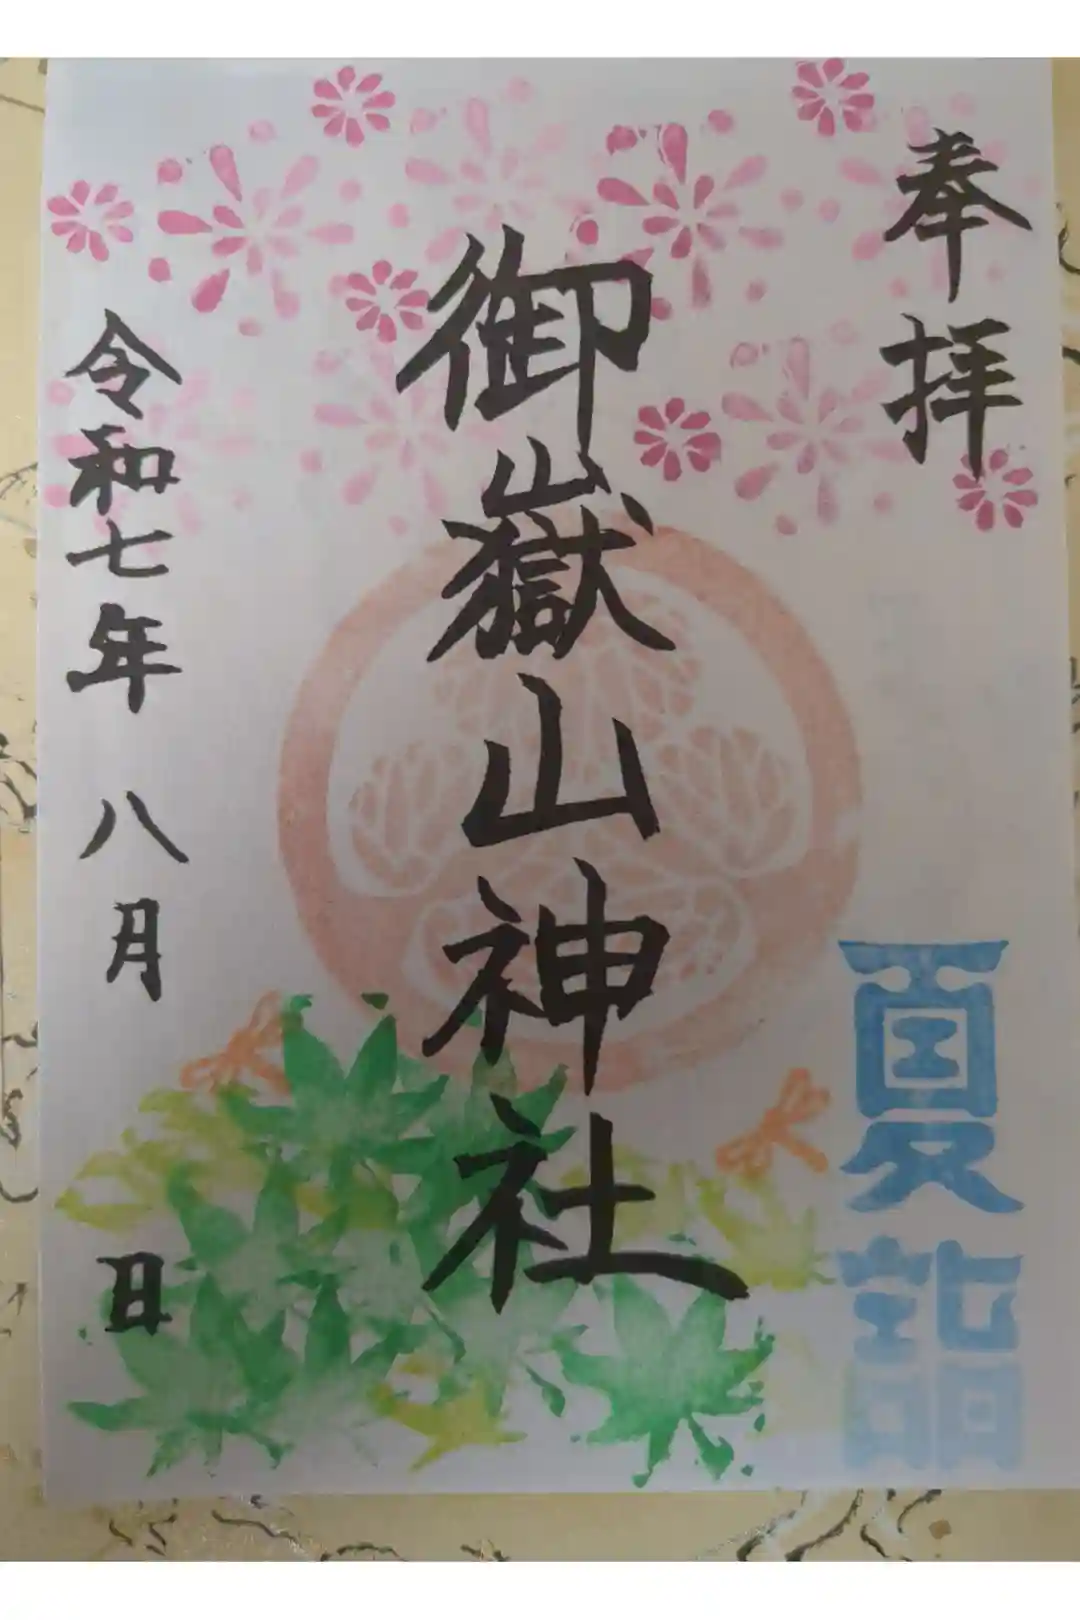 奉拝
夏詣
御嶽山神社
令和七年 八月 日